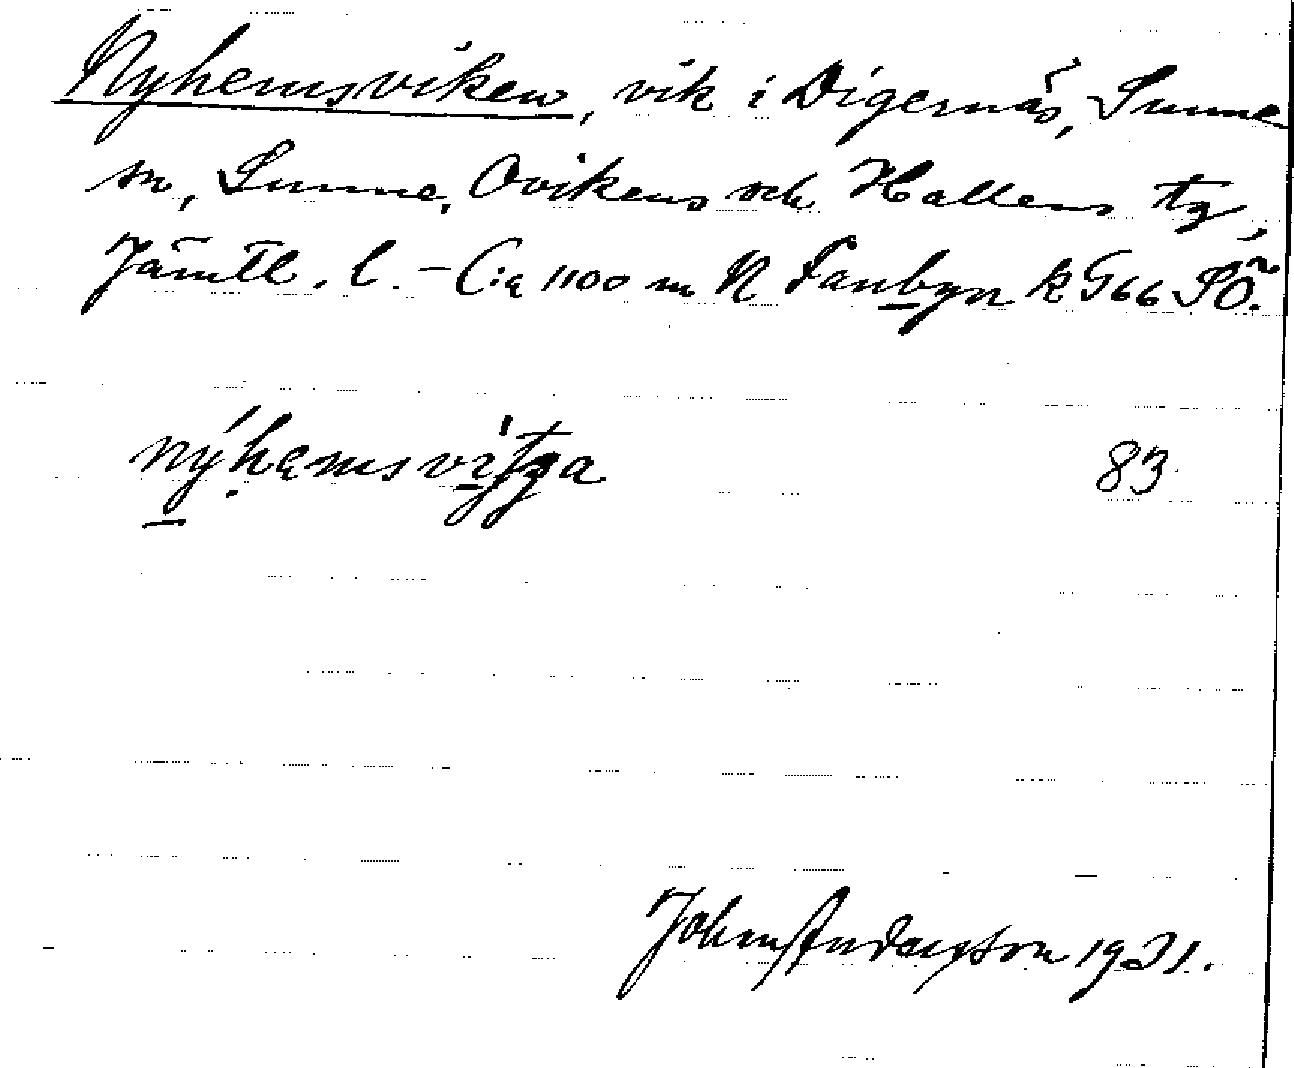 Nyhemsviken, vik i Digernäs, Sunne
sn, Sunne, Ovikens och Hallens tg,
Jämtl. l. – C:a 1100 m N Fanbyn k G66 SÖ.
83
John Anderson 1931.